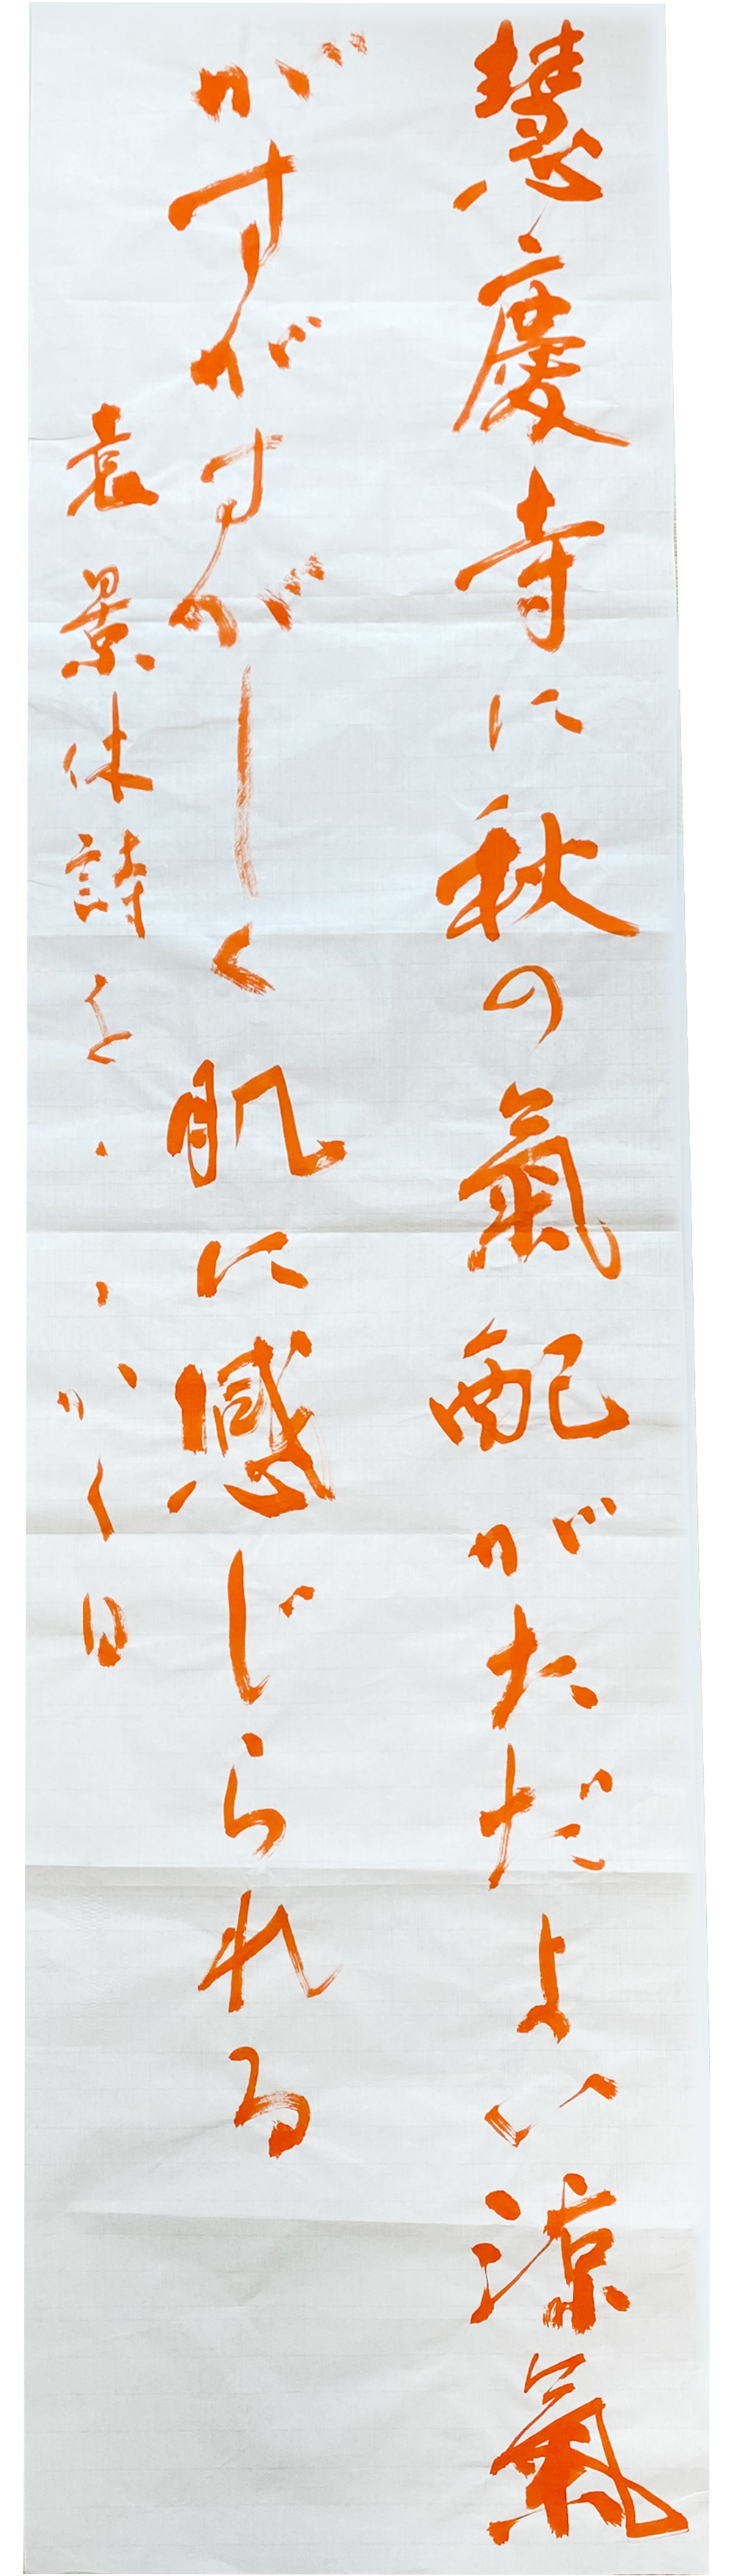 慧慶寺に秋の氣配がただよい涼氣
がすがすがしく肌に感じられる
袁景休詩を かく